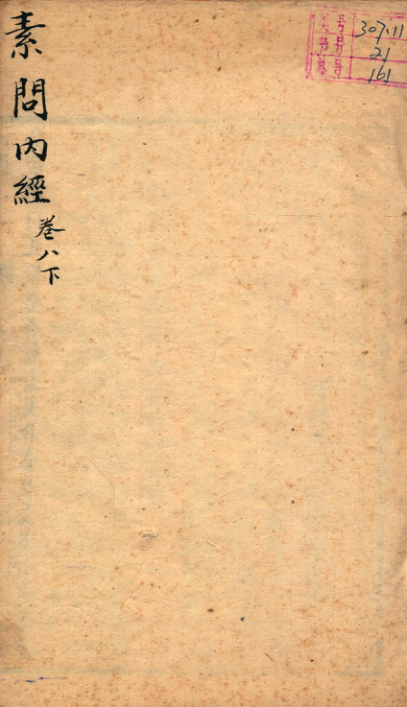 素問內經
卷八下
号 307.11
号 21
号 161